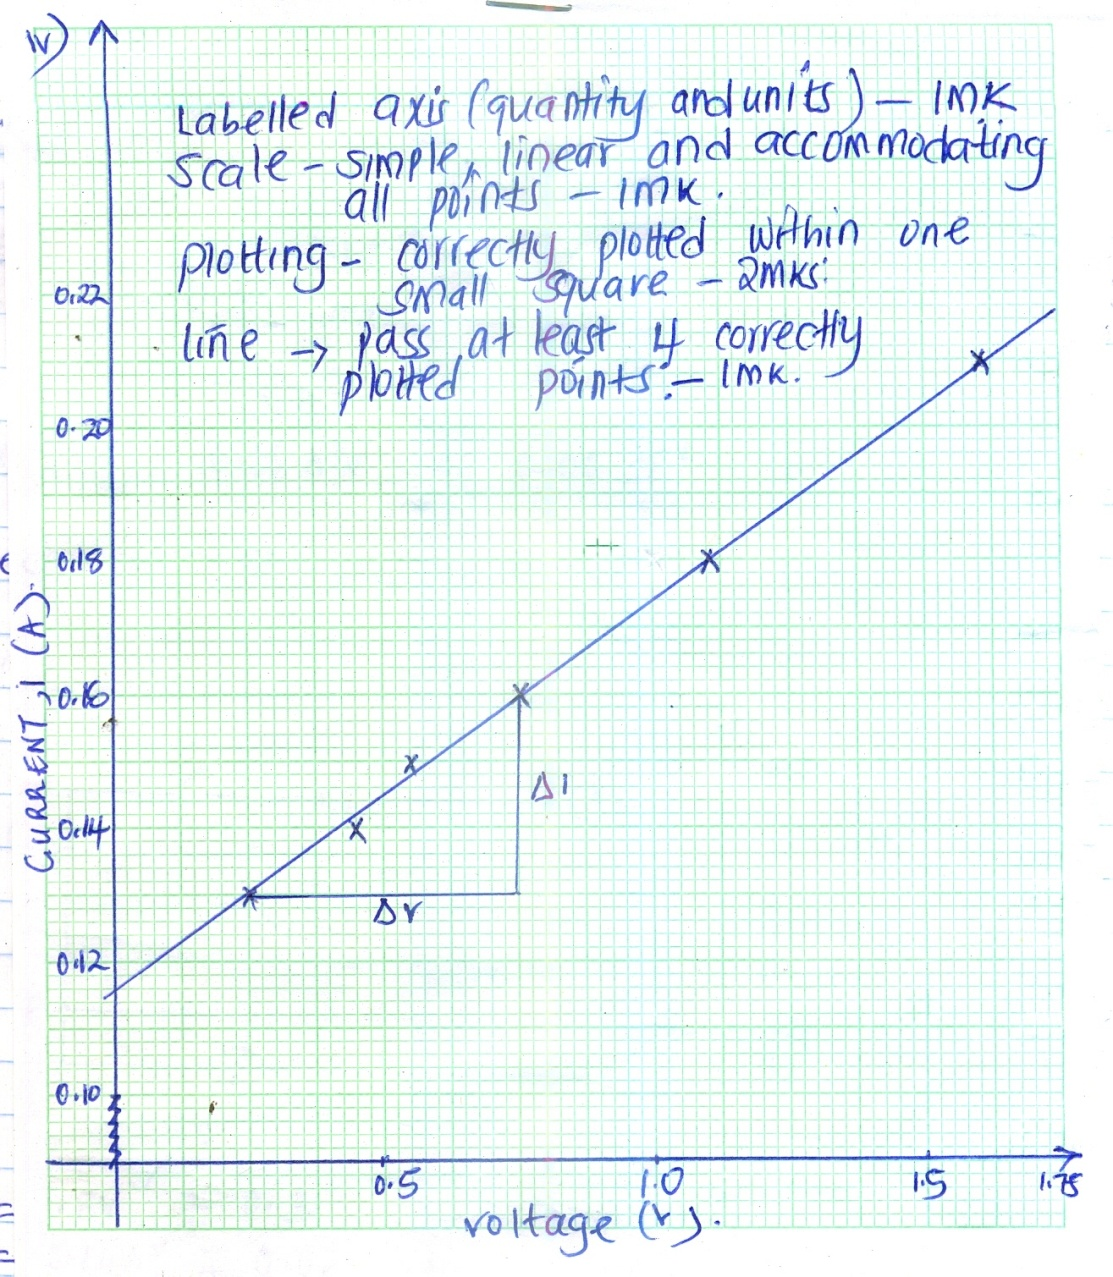 iv)
Labelled axis (quantity and units) – 1mk
Scale – simple, linear and accommodating
all points – 1mk.
plotting – correctly plotted within one
small square – 2mks.
line → pass at least 4 correctly
plotted points. – 1mk.
0.22
0.20
0.18
0.16
0.14
0.12
0.10
CURRENT, I (A).
ΔI
ΔV
0.5 1.0 1.5 1.75
voltage (V).